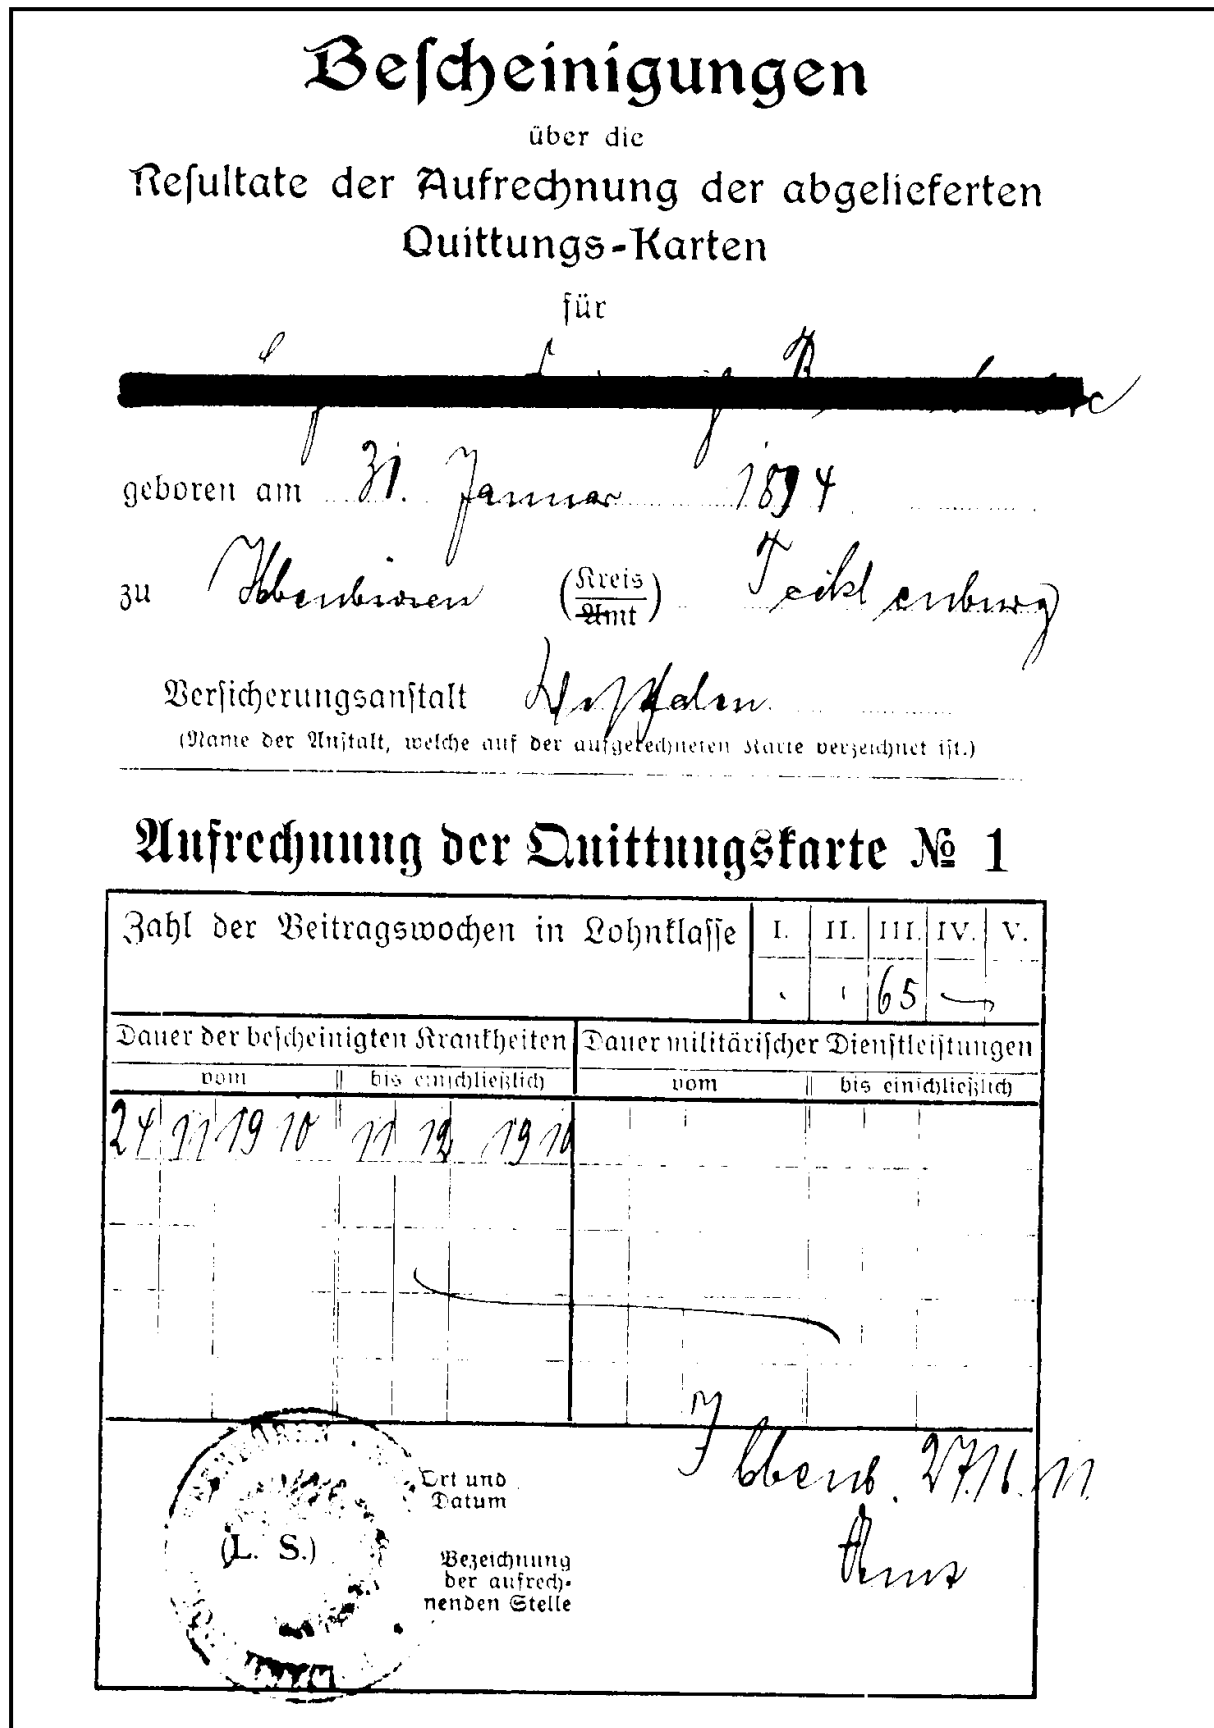 Bescheinigungen
über die
Resultate der Aufrechnung der abgelieferten
Quittungs-Karten
für
geboren am 31. Januar 1894
zu Ibbenbüren (Kreis/Amt) Tecklenburg
Versicherungsanstalt Westfalen
(Name der Anstalt, welche auf der aufgerechneten Karte verzeichnet ist.)
Aufrechnung der Quittungskarte № 1
Zahl der Beitragswochen in Lohnklasse I. II. III. IV. V.
65
Dauer der bescheinigten Krankheiten Dauer militärischer Dienstleistungen
vom bis einschließlich vom bis einschließlich
24 11 19 10 11 12 19 10
Ort und Ibbenb. 27/6.11.
Datum
(L. S.) Amt
Bezeichnung
der aufrech-
nenden Stelle